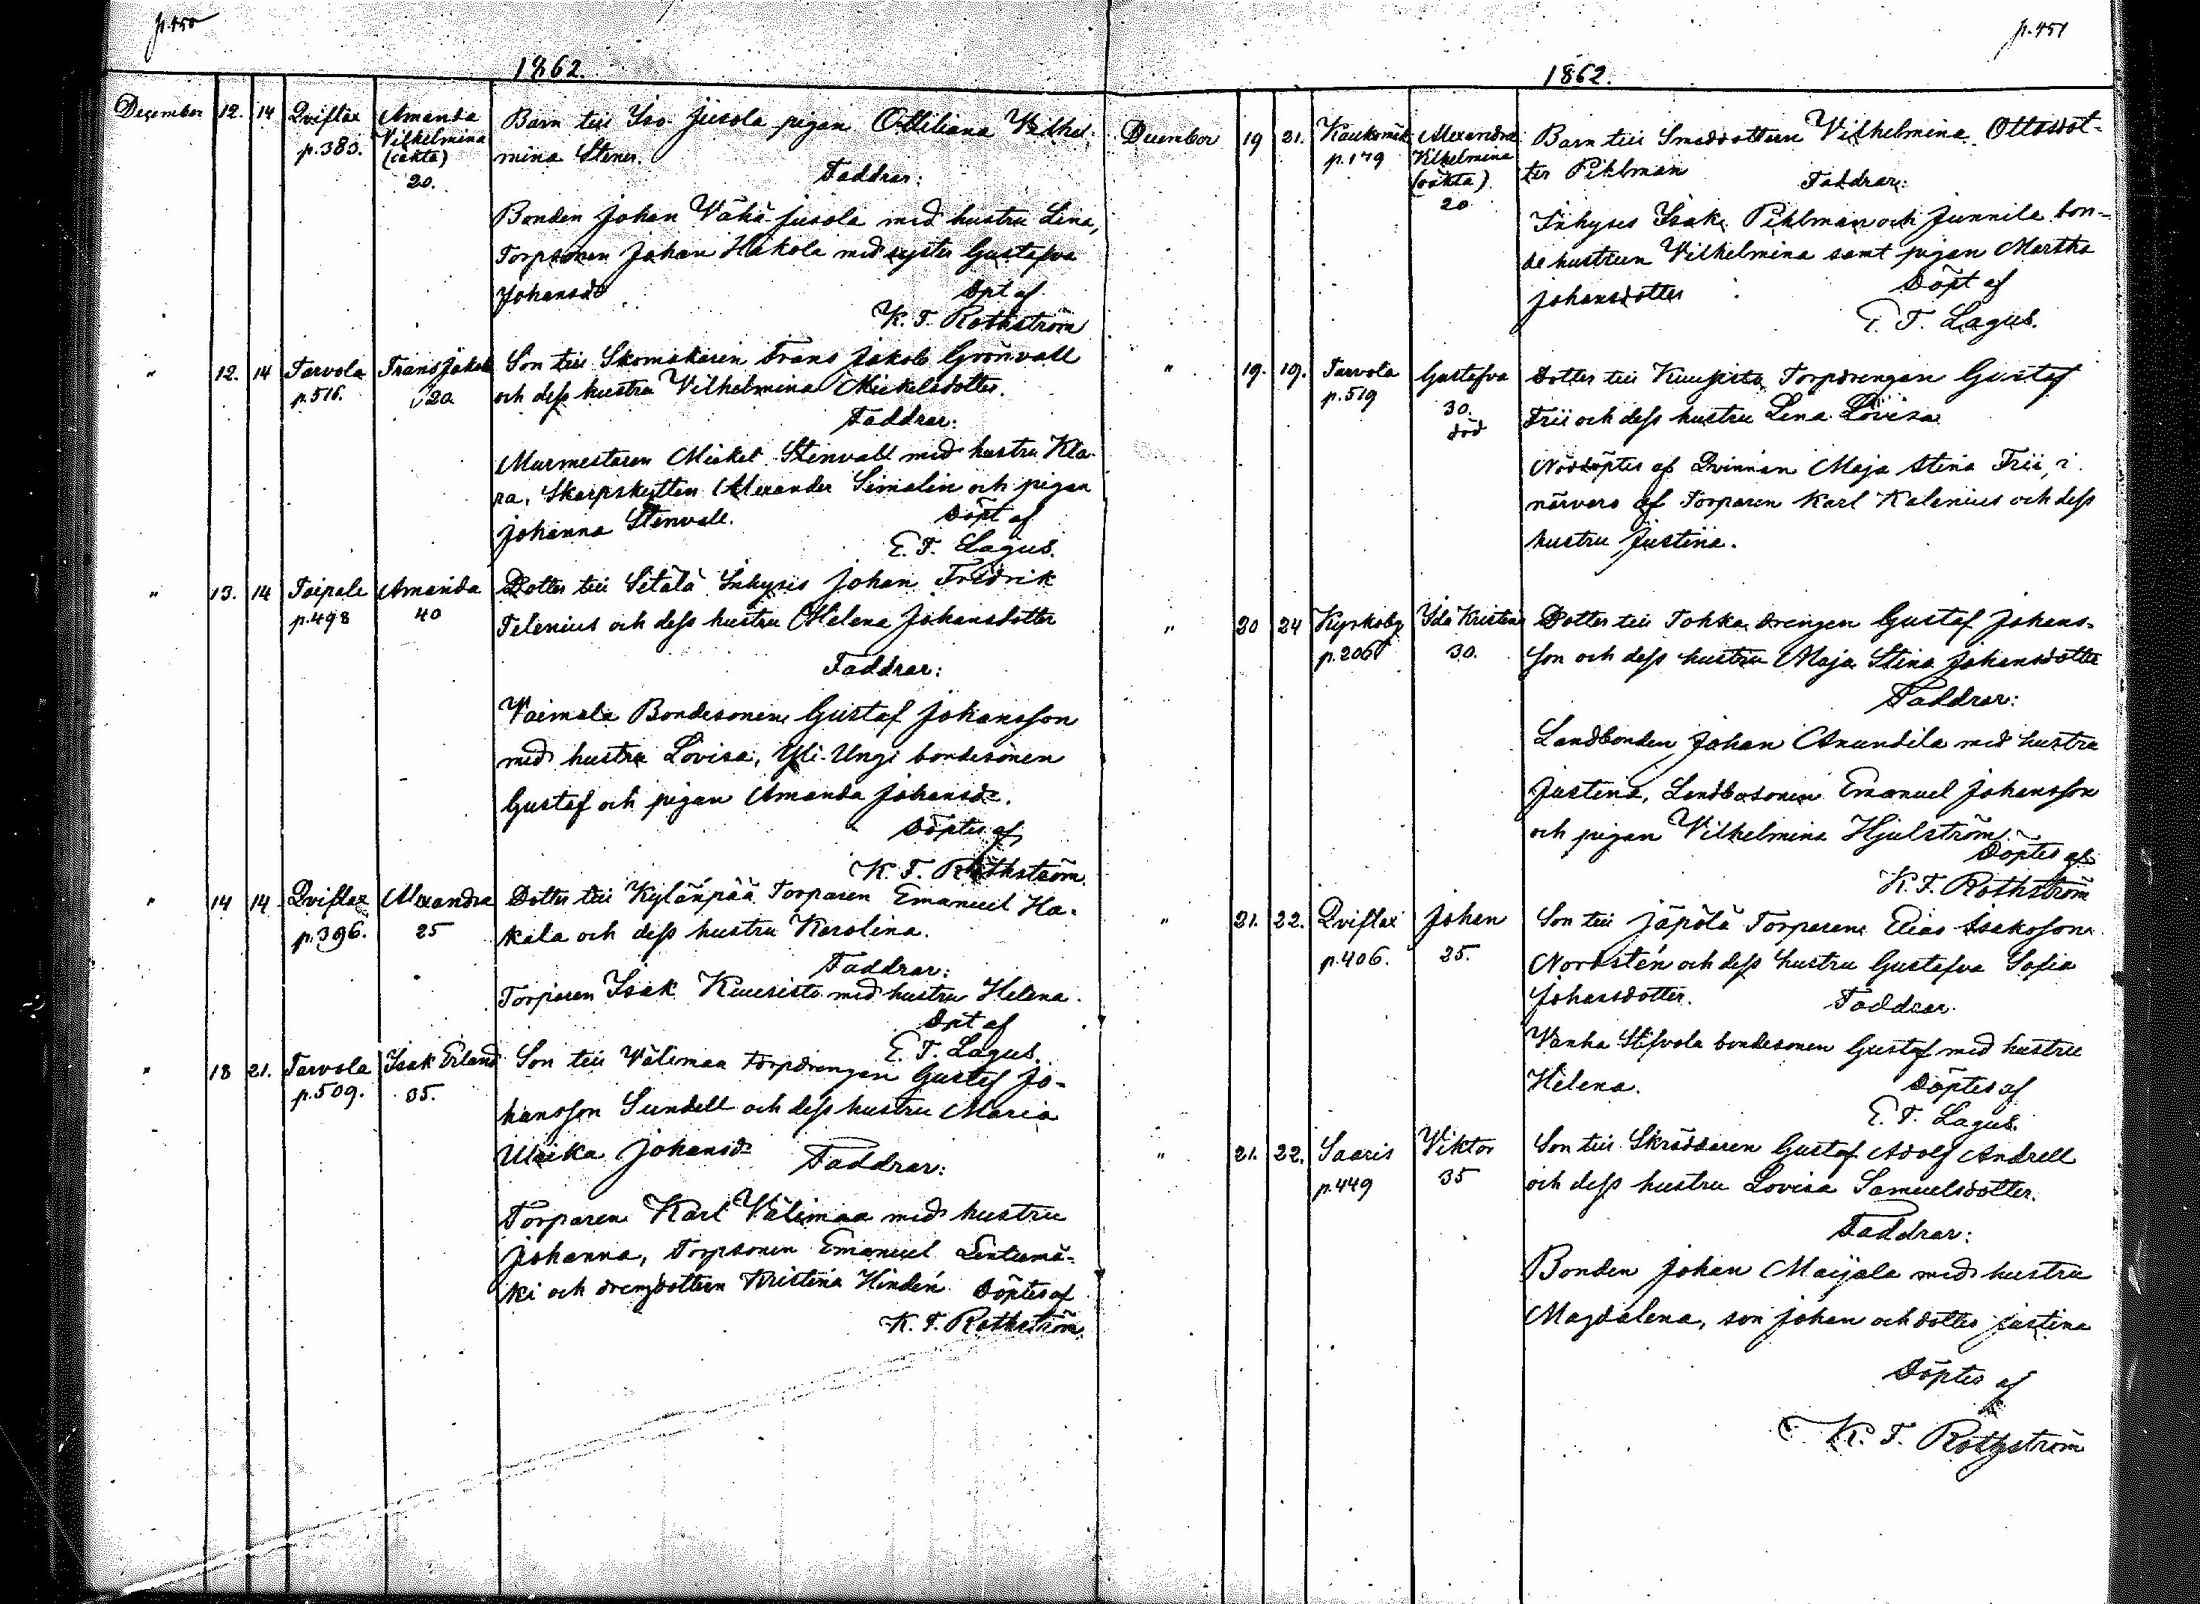 p. 450
1862.
December 12. 14 Qviflax Amanda Barn till Iso Jusola pigan Ottiliana Vilhel-
p. 383. Vilhelmina mina Stener.
(oäkta) Faddrar:
20.
Bonden Johan Vähä Jusola med hustru Lena,
Torpsonen Johan Hakola med syster Gustafva
Johansdr Dpt af
K. F. Rothström
" 12. 14 Tarvola Frans Jakob Son till Skomakaren Frans Jakob Grönvall
p. 516. 20. och dess hustru Vilhelmina Mickelsdotter.
Faddrar:
Murmestaren Mickel Stenvall med hustru Kla-
ra, Skarpskytten Alexander Simalin och pigan
Johanna Stenvall. Döpt af
E. F. Lagus.
" 13. 14 Taipale Amanda Dotter till Sètälä Inhyses Johan Fredrik
p. 498 40 Telenius och dess hustru Helena Johansdotter
Faddrar:
Vaimala Bondesonen Gustaf Johansson
med hustru Lovisa, Yli-Ungi bondesonen
Gustaf och pigan Amanda Johansdr.
Döptes af
K. F. Rothström.
" 14 14 Qviflax Alexandra Dotter till Kylänpää Torparen Emanuel Ha-
p. 396. 25 kala och dess hustru Karolina.
Faddrar:
Torparen Isak Kuusisto med hustru Helena.
Dpt af
E. F. Lagus.
" 18 21. Tarvola Isak Erland Son till Välimaa torpdrengen Gustaf Jo-
p. 509. 35. hansson Sundell och dess hustru Maria
Ulrika Johansdr Faddrar:
Torparen Karl Välimaa med hustru
Johanna, Torpsonen Emanuel Lentumä-
ki och drengdottren Kristina Hindén Döptes af
K. F. Rothström.
p. 451
1862.
December 19 21. Alexandra Barn till Smeddottern Vilhelmina Ottosdot-
p. 179 Vilhelmina ter Pihlman
(oäkta) Faddrar:
20
Inhyses Isak Pihlman och Junnila bon-
de hustrun Vilhelmina samt pigan Martha
Johansdotter Döpt af
E. F. Lagus.
" 19. 19. Tarvola Gustafva Dotter till Kuusisto Torpdrengen Gustaf
p. 519 30. Frii och dess hustru Lena Lovisa
död
Nöddöptes af Qvinnan Maja Stina Frii, i
närvaro af Torparen Karl Kalenius och dess
hustru Justina.
" 20 24 Kyrkoby Ida Kristina Dotter till Tohka drengen Gustaf Johans-
p. 206 30. son och dess hustru Maja Stina Johansdotter
Faddrar:
Landbonden Johan Anundila med hustru
Justina, Landbosonen Emanuel Johansson
och pigan Vilhelmina Hjulström.
Döptes af
K. F. Rothström
" 21. 22. Qviflax Johan Son till Jäpölä Torparen Elias Isaksson
p. 406. 25. Nordstén och dess hustru Gustafva Sofia
Johansdotter. Faddrar.
Vanha Stifvola bondesonen Gustaf med hustru
Helena. Döptes af
E. F. Lagus.
" 21. 22. Saaris Viktor Son till Skräddaren Gustaf Adolf Andrell
p. 449 35 och dess hustru Lovisa Samuelsdotter.
Faddrar:
Bonden Johan Maijala med hustru
Magdalena, son Johan och dotter Justina
Döptes af
K. F. Rothström